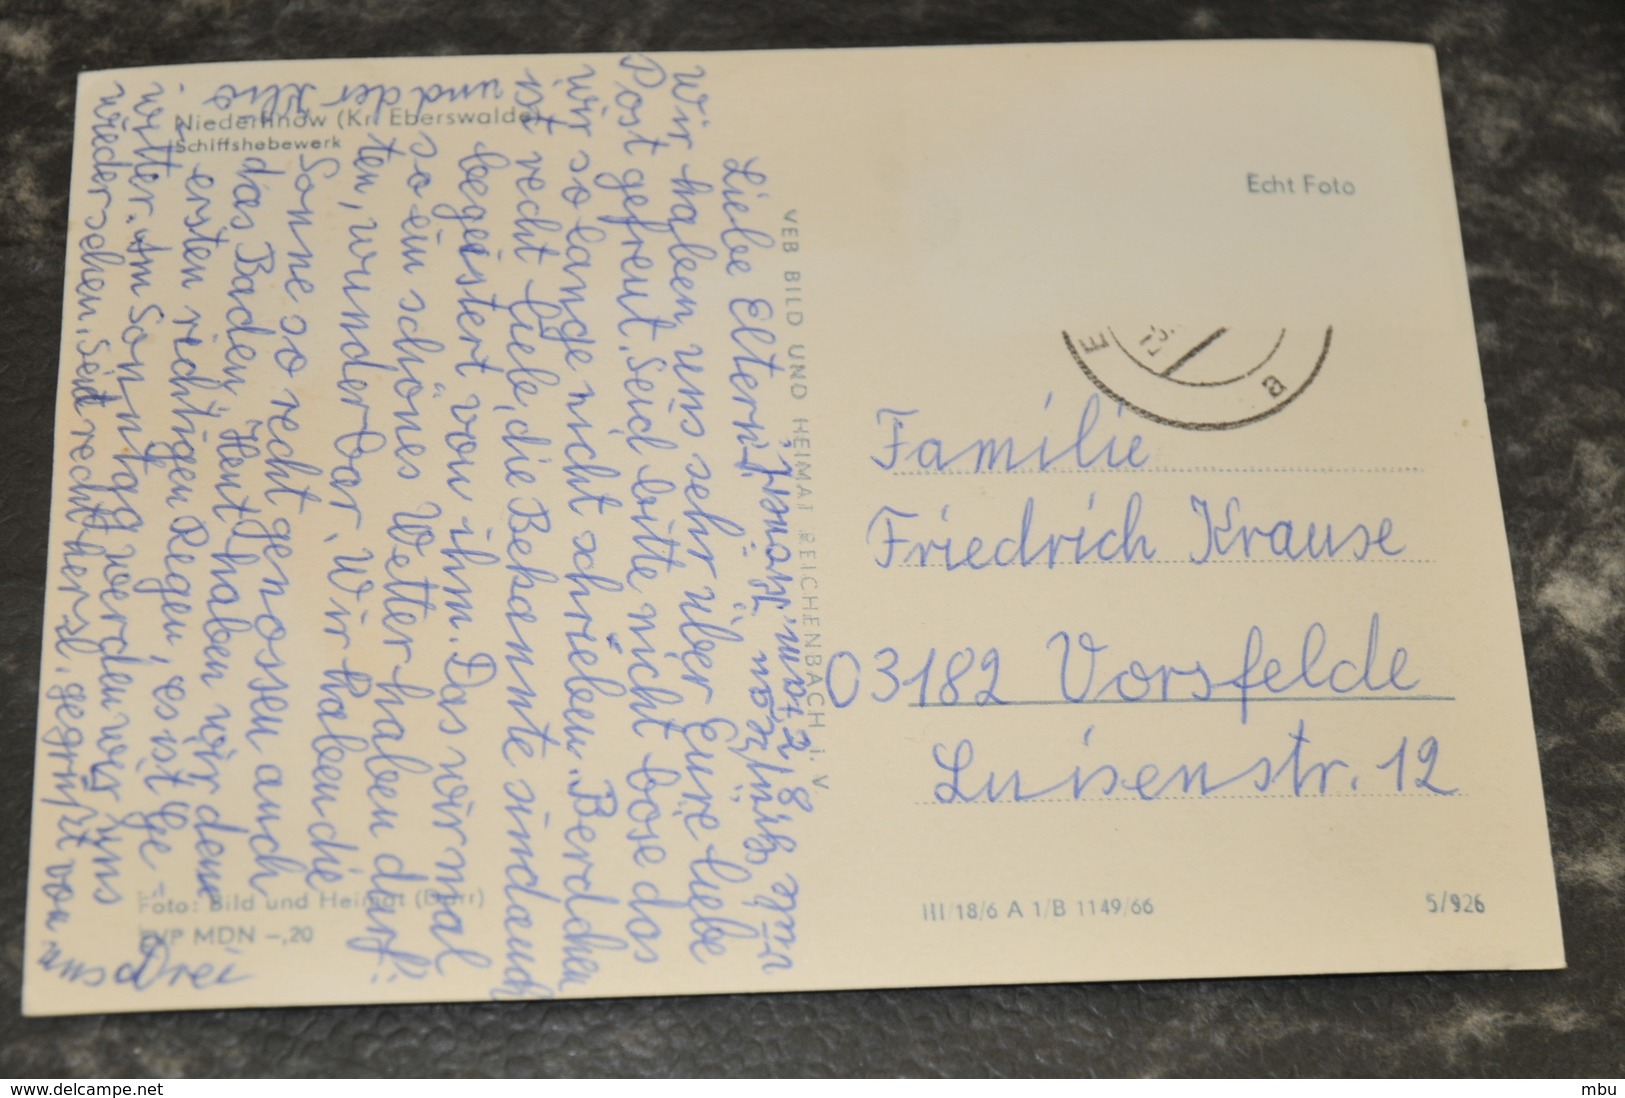 Niederfinow (Kr. Eberswalde)
Schiffshebewerk
Liebe Eltern!
Wir haben uns sehr über Eure liebe
Post gefreut. Seid bitte nicht böse das
wir so lange nicht schrieben. Berdchen
ist recht lieb, die Bekannte sind auch
begeistert von ihm. Das wir mal
so ein schönes Wetter haben dürf-
ten, wunderbar. Wir haben die
Sonne so recht genossen auch
das Baden. Heut haben wir denn
ersten richtigen Regen, es ist Ge-
witter. Am Sonntag werden wir uns
wieder sehen. Seid recht herzl. gegrüßt von uns
Drei
und der
VEB BILD UND HEIMAT REICHENBACH i. V.
Foto: Bild und Heimat (Darr)
EVP MDN -,20
Echt Foto
E
a
Familie
Friedrich Krause
03182 Vorsfelde
Luisenstr. 12
III/18/6 A 1/B 1149/66
5/926
www.delcampe.net
mbu